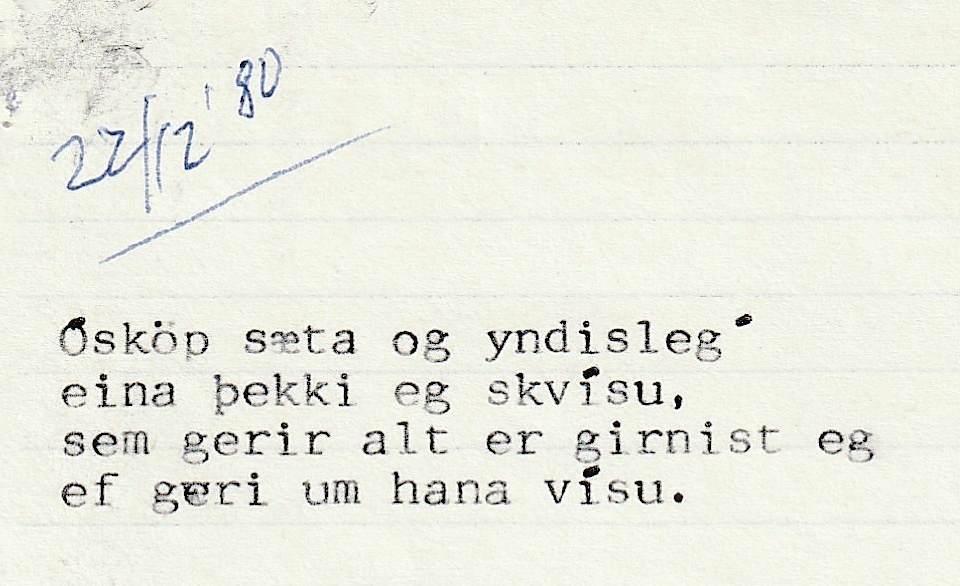 22/12 '80
Ósköp sæta og yndisleg'
eina þekki eg skvísu,
sem gerir alt er girnist eg
ef geri um hana vísu.